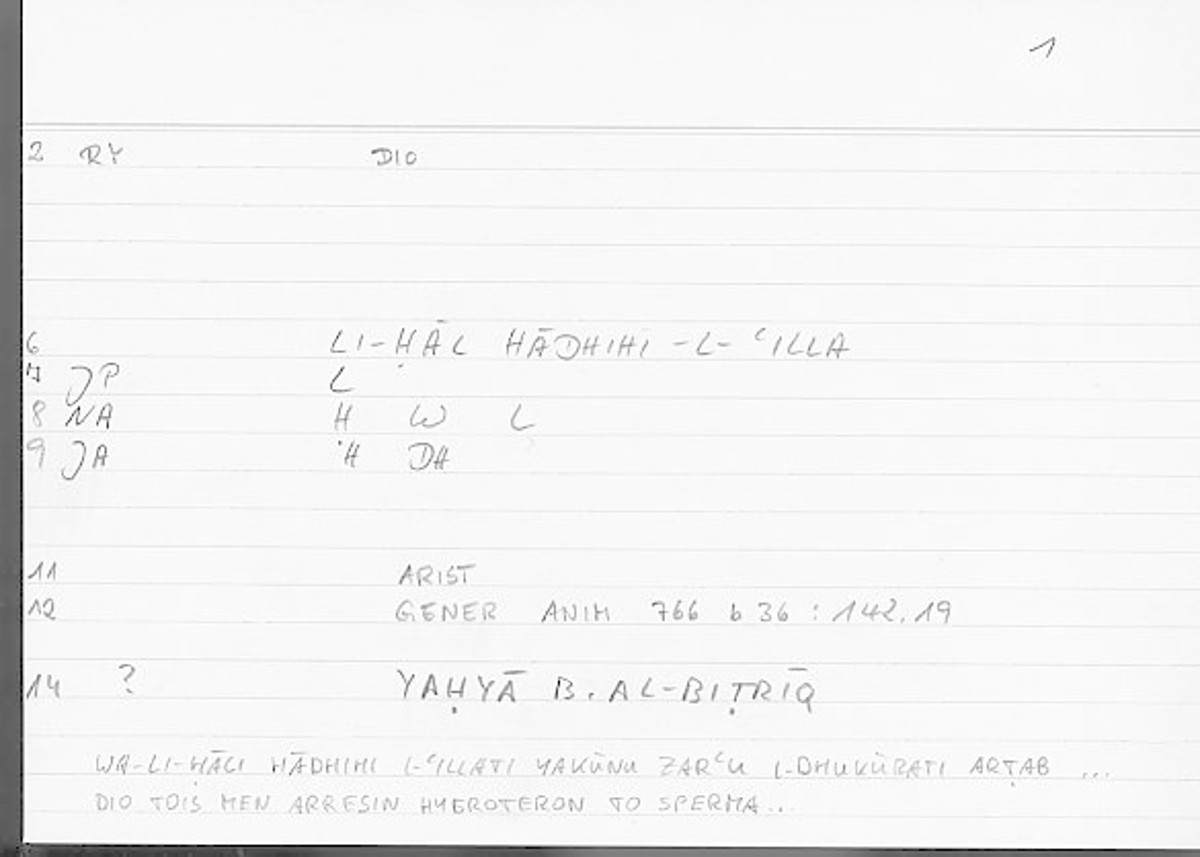 1
2 RY DIO
6 LI-ḤĀL HĀDHIHI -L- ʿILLA
7 JP L
8 NA H W L
9 JA ʾH DH
11 ARIST
12 GENER ANIM 766 b 36 : 142,19
14 ? YAḤYĀ B. AL-BIṬRĪQ
WA-LI-ḤĀLI HĀDHIHI L-ʿILLATI YAKŪNU ZARʿU L-DHUKŪRATI ARṬAB ...
DIO TOIS MEN ARRESIN HYGROTERON TO SPERMA...